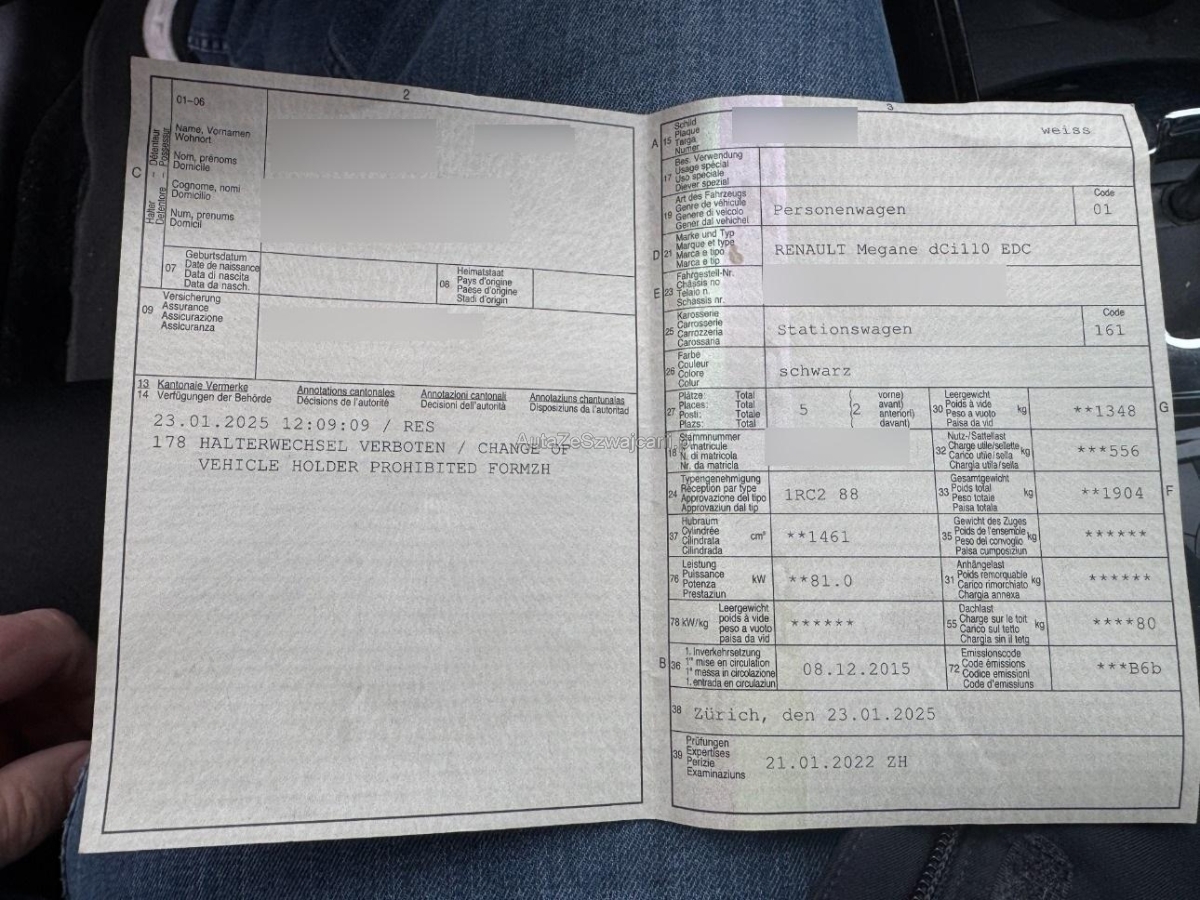 2
01-06
C
Halter – Détenteur
Detentore – Possessur
Name, Vornamen
Wohnort
Nom, prénoms
Domicile
Cognome, nomi
Domicilio
Num, prenums
Domicil
07
Geburtsdatum
Date de naissance
Data di nascita
Data da nasch.
08
Heimatstaat
Pays d'origine
Paese d'origine
Stadi d'origin
09
Versicherung
Assurance
Assicurazione
Assicuranza
13 Kantonale Vermerke Annotations cantonales Annotazioni cantonali Annotaziuns chantunalas
14 Verfügungen der Behörde Décisions de l'autorité Decisioni dell'autorità Disposiziuns da l'autoritad
23.01.2025 12:09:09 / RES
178 HALTERWECHSEL VERBOTEN / CHANGE OF
VEHICLE HOLDER PROHIBITED FORMZH
AutaZeSzwajcarii.pl
3
A 15
Schild
Plaque
Targa
Numer
weiss
17
Bes. Verwendung
Usage spécial
Uso speciale
Diever spezial
19
Art des Fahrzeugs
Genre de véhicule
Genere di veicolo
Gener dal vehichel
Personenwagen
Code
01
D 21
Marke und Typ
Marque et type
Marca e tipo
Marca e tip
RENAULT Megane dCi110 EDC
E 23
Fahrgestell-Nr.
Châssis no
Telaio n.
Schassis nr.
25
Karosserie
Carrosserie
Carrozzeria
Carossaria
Stationswagen
Code
161
26
Farbe
Couleur
Colore
Colur
schwarz
27
Plätze: Total
Places: Total
Posti: Totale
Plazs: Total
5
(2
vorne)
avant)
anteriori)
davant)
30
Leergewicht
Poids à vide
Peso a vuoto
Paisa da vid
kg
**1348
G
18
Stammnummer
N. matricule
N. di matricola
Nr. da matricla
32
Nutz-/Sattellast
Charge utile/sellette
Carico utile/sella
Chargia utila/sella
kg
***556
24
Typengenehmigung
Réception par type
Approvazione del tipo
Approvaziun dal tip
1RC2 88
33
Gesamtgewicht
Poids total
Peso totale
Paisa totala
kg
**1904
F
37
Hubraum
Cylindrée
Cilindrata
Cilindrada
cm³
**1461
35
Gewicht des Zuges
Poids de l'ensemble
Peso del convoglio
Paisa cumposiziun
kg
******
76
Leistung
Puissance
Potenza
Prestaziun
kW
**81.0
31
Anhängelast
Poids remorquable
Carico rimorchiato
Chargia annexa
kg
******
78 kW/kg
Leergewicht
poids à vide
peso a vuoto
paisa da vid
******
55
Dachlast
Charge sur le toit
Carico sul tetto
Chargia sin il tetg
kg
****80
B 36
1. Inverkehrsetzung
1re mise en circulation
1a messa in circolazione
1. entrada en circulaziun
08.12.2015
72
Emissionscode
Code émissions
Codice emissioni
Code d'emissiuns
***B6b
38
Zürich, den 23.01.2025
39
Prüfungen
Expertises
Perizie
Examinaziuns
21.01.2022 ZH